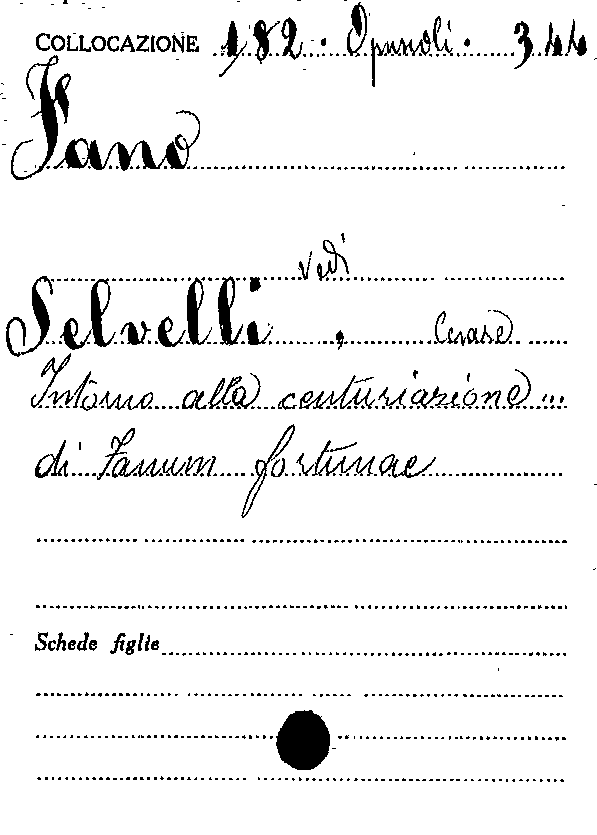 COLLOCAZIONE 182. Opuscoli. 344
Fano
vedi
Selvelli, Cesare
Intorno alla centuriazione...
di Fanum fortunae
Schede figlie